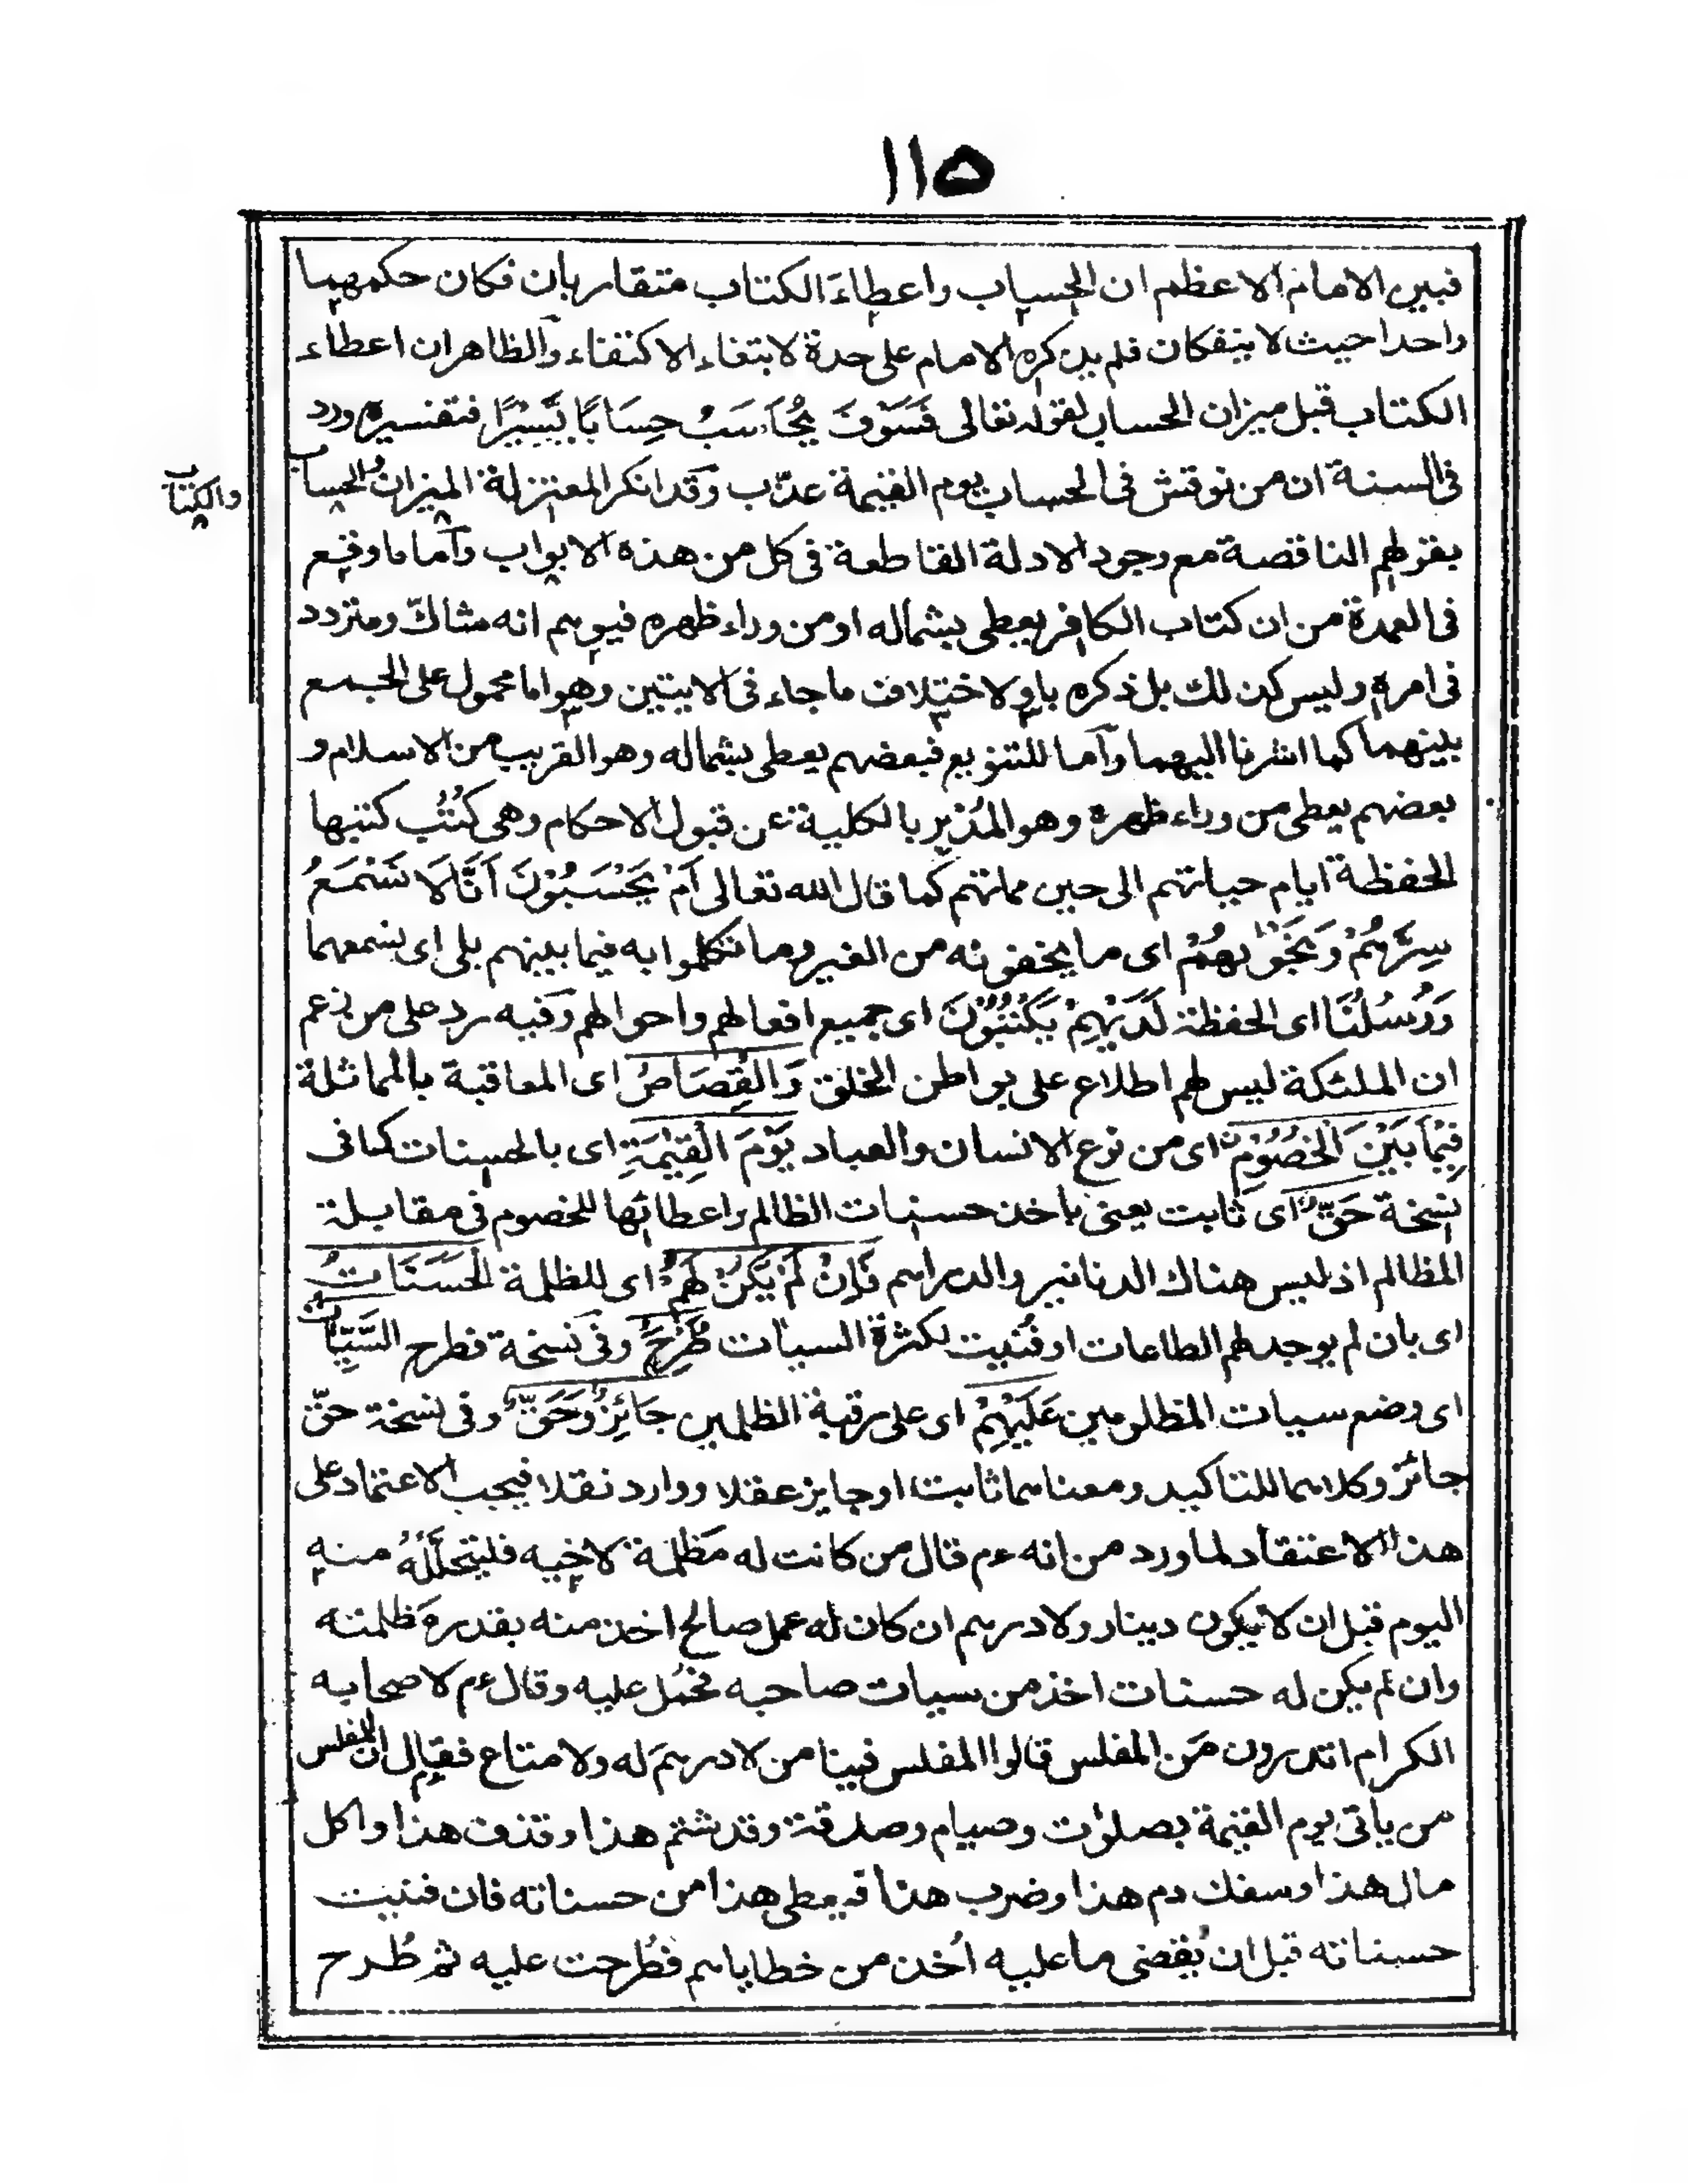 ١١٥
فبين الامام الاعظم ان الحساب واعطاءَ الكتاب متقاربان فكان حكمهما
واحدا حيث لا ينفكان فلم يذكره الامام على حدة لابتغاء الاكتفاء والظاهر ان اعطاء
الكتاب قبل ميزان الحساب لقوله تعالى فَسَوْفَ يُحَاسَبُ حِسَابًا يَّسِيْرًا فتفسيره ورد
فى السنة ان من نوقش فى الحساب يوم القيٰمة عذّب وقد انكر المعتزلة الميزان والحساب
والكتاب
بعقولهم الناقصة مع وجود الادلة القاطعة فى كل من هذه الابواب وآما ما وقع
فى العمدة من ان كتاب الكافر يعطى بشماله او من وراء ظهره فيوهم انه شاكّ ومتردد
فى امره وليس كذلك بل ذكره باو لاختلاف ما جاء فى الايتين وهو اما محمول على الجمع
بينهما كما اشرنا اليهما وآما للتنويع فبعضهم يعطى بشماله وهو القريب من الاسلام و
بعضهم يعطى من وراء ظهره وهو المُدْبر بالكلية عن قبول الاحكام وهى كُتُب كتبها
الحفظة ايام حياتهم الى حين مماتهم كما قال الله تعالى اَمْ يَحْسَبُوْنَ اَنَّا لَا نَسْمَعُ
سِرَّهُمْ وَنَجْوٰىهُمْ اى ما يخفونه من الغير وما تكلموا به فيما بينهم بلى اى نسمعهما
وَرُسُلُنَا اى الحفظة لَدَيْهِمْ يَكْتُبُوْنَ اى جميع افعالهم واحوالهم وفيه رد على من زعم
ان الملئكة ليس لهم اطلاع على بواطن الخلق وَالْقِصَاصُ اى المعاقبة بالمماثلة
فِيْمَا بَيْنَ الْخُصُوْمِ اى من نوع الانسان والعباد يَوْمَ الْقِيٰمَةِ اى بالحسنات كما فى
نسخة حَقٌّ اى ثابت يعنى باخذ حسنات الظالم واعطائها للخصوم فى مقابلة
المظالم اذ ليس هناك الدنانير والدراهم فَاِنْ لَمْ يَكُنْ لَهُمُ اى للظلمة الْحَسَنَاتُ
اى بان لم يوجد لهم الطاعات او فنيت لكثرة السيآت طُرِحَ وفى نسخة فطرح السَّيِّئَاتُ
اى وضع سيات المظلومين عَلَيْهِمْ اى على رقبة الظلمين جَائِزٌ وَحَقٌّ وفى نسخة حقّ
جائز وكلاهما للتاكيد ومعناهما ثابت او جايز عقلا ووارد نقلا فيجب الاعتماد على
هذا الاعتقاد لما ورد من انه عم قال من كانت له مَظلمة لاخيه فليتحلَّلْهُ منه
اليوم قبل ان لا يكون دينار ولا درهم ان كان له عمل صالح اخذ منه بقدر مَظلمته
وان لم يكن له حسنات اخذ من سيات صاحبه فحُمل عليه وقال عم لاصحابه
الكرام اتدرون مَن المفلس قالوا المفلس فينا من لا درهمَ له ولا متاع فقال ان المفلس
من ياتى يوم القيٰمة بصلوٰت وصيام وصدقة وقد شتم هذا وقذف هذا واكل
مال هذا وسفك دم هذا وضرب هذا فيعطى هذا من حسناته فان فنيت
حسناته قبل ان يُقضى ما عليه اُخذ من خطاياهم فطُرحت عليه ثم طُرح